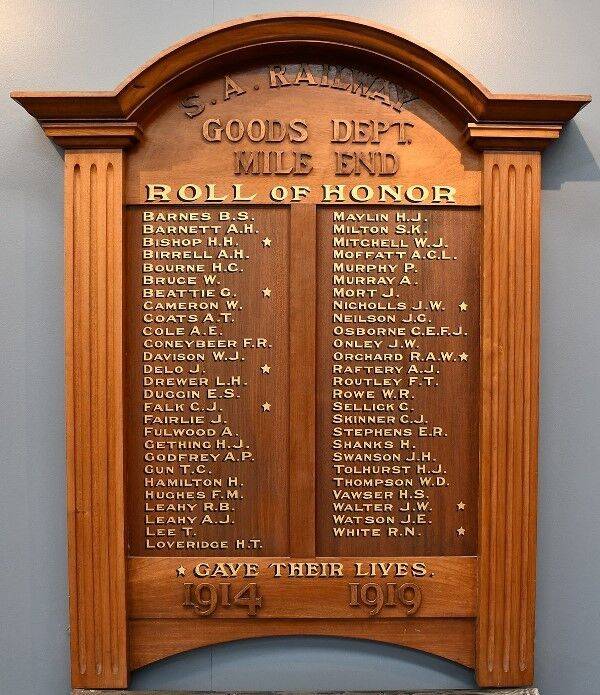 S.A. RAILWAY
GOODS DEPT.
MILE END
ROLL OF HONOR
BARNES B.S.
BARNETT A.H.
BISHOP H.H. ★
BIRRELL A.H.
BOURNE H.C.
BRUCE W.
BEATTIE G. ★
CAMERON W.
COATS A.T.
COLE A.E.
CONEYBEER F.R.
DAVISON W.J.
DELO J. ★
DREWER L.H.
DUGGIN E.S.
FALK C.J. ★
FAIRLIE J.
FULWOOD A.
GETHING H.J.
GODFREY A.P.
GUN T.C.
HAMILTON H.
HUGHES F.M.
LEAHY R.B.
LEAHY A.J.
LEE T.
LOVERIDGE H.T.
MAYLIN H.J.
MILTON S.K.
MITCHELL W.J.
MOFFATT A.C.L.
MURPHY P.
MURRAY A.
MORT J.
NICHOLLS J.W. ★
NEILSON J.G.
OSBORNE C.E.F.J.
ONLEY J.W.
ORCHARD R.A.W. ★
RAFTERY A.J.
ROUTLEY F.T.
ROWE W.R.
SELLICK C.
SKINNER C.J.
STEPHENS E.R.
SHANKS H.
SWANSON J.H.
TOLHURST H.J.
THOMPSON W.D.
VAWSER H.S.
WALTER J.W. ★
WATSON J.E.
WHITE R.N. ★
★ GAVE THEIR LIVES.
1914 1919